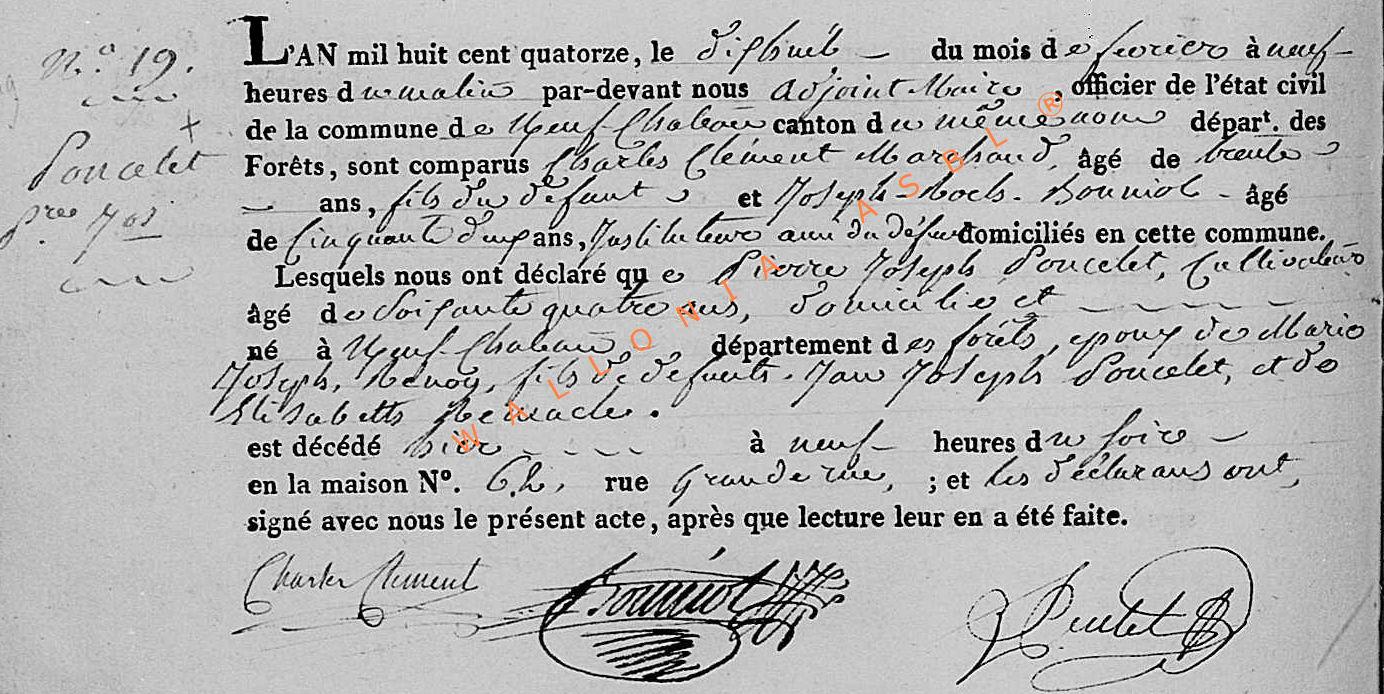 N.º 19.
Poncelet
pre Jos
L'AN mil huit cent quatorze, le dixhuit du mois de fevrier à neuf
heures du matin par-devant nous adjoint Maire, officier de l'état civil
de la commune de Neuf-Chateau canton du même nom départ. des
Forêts, sont comparus Charles Clément Marchand, âgé de trente
ans, fils du défunt et Joseph Bouniol âgé
de cinquante ans, Instituteur ami du défunt domiciliés en cette commune.
Lesquels nous ont déclaré que Pierre Joseph Poncelet, Cultivateur
âgé de soixante quatre ans, domicilié et
né à Neuf-Chateau département des forêts, epoux de Marie
Joseph, fils de defunts Jean Joseph Poncelet, et de
Elisabeth Remacle.
est décédé hier à neuf heures du soir
en la maison Nº. 62, rue Grande rue, ; et les déclarans ont,
signé avec nous le présent acte, après que lecture leur en a été faite.
Charles Clement Bouniol
WALLONIA ASBL ®